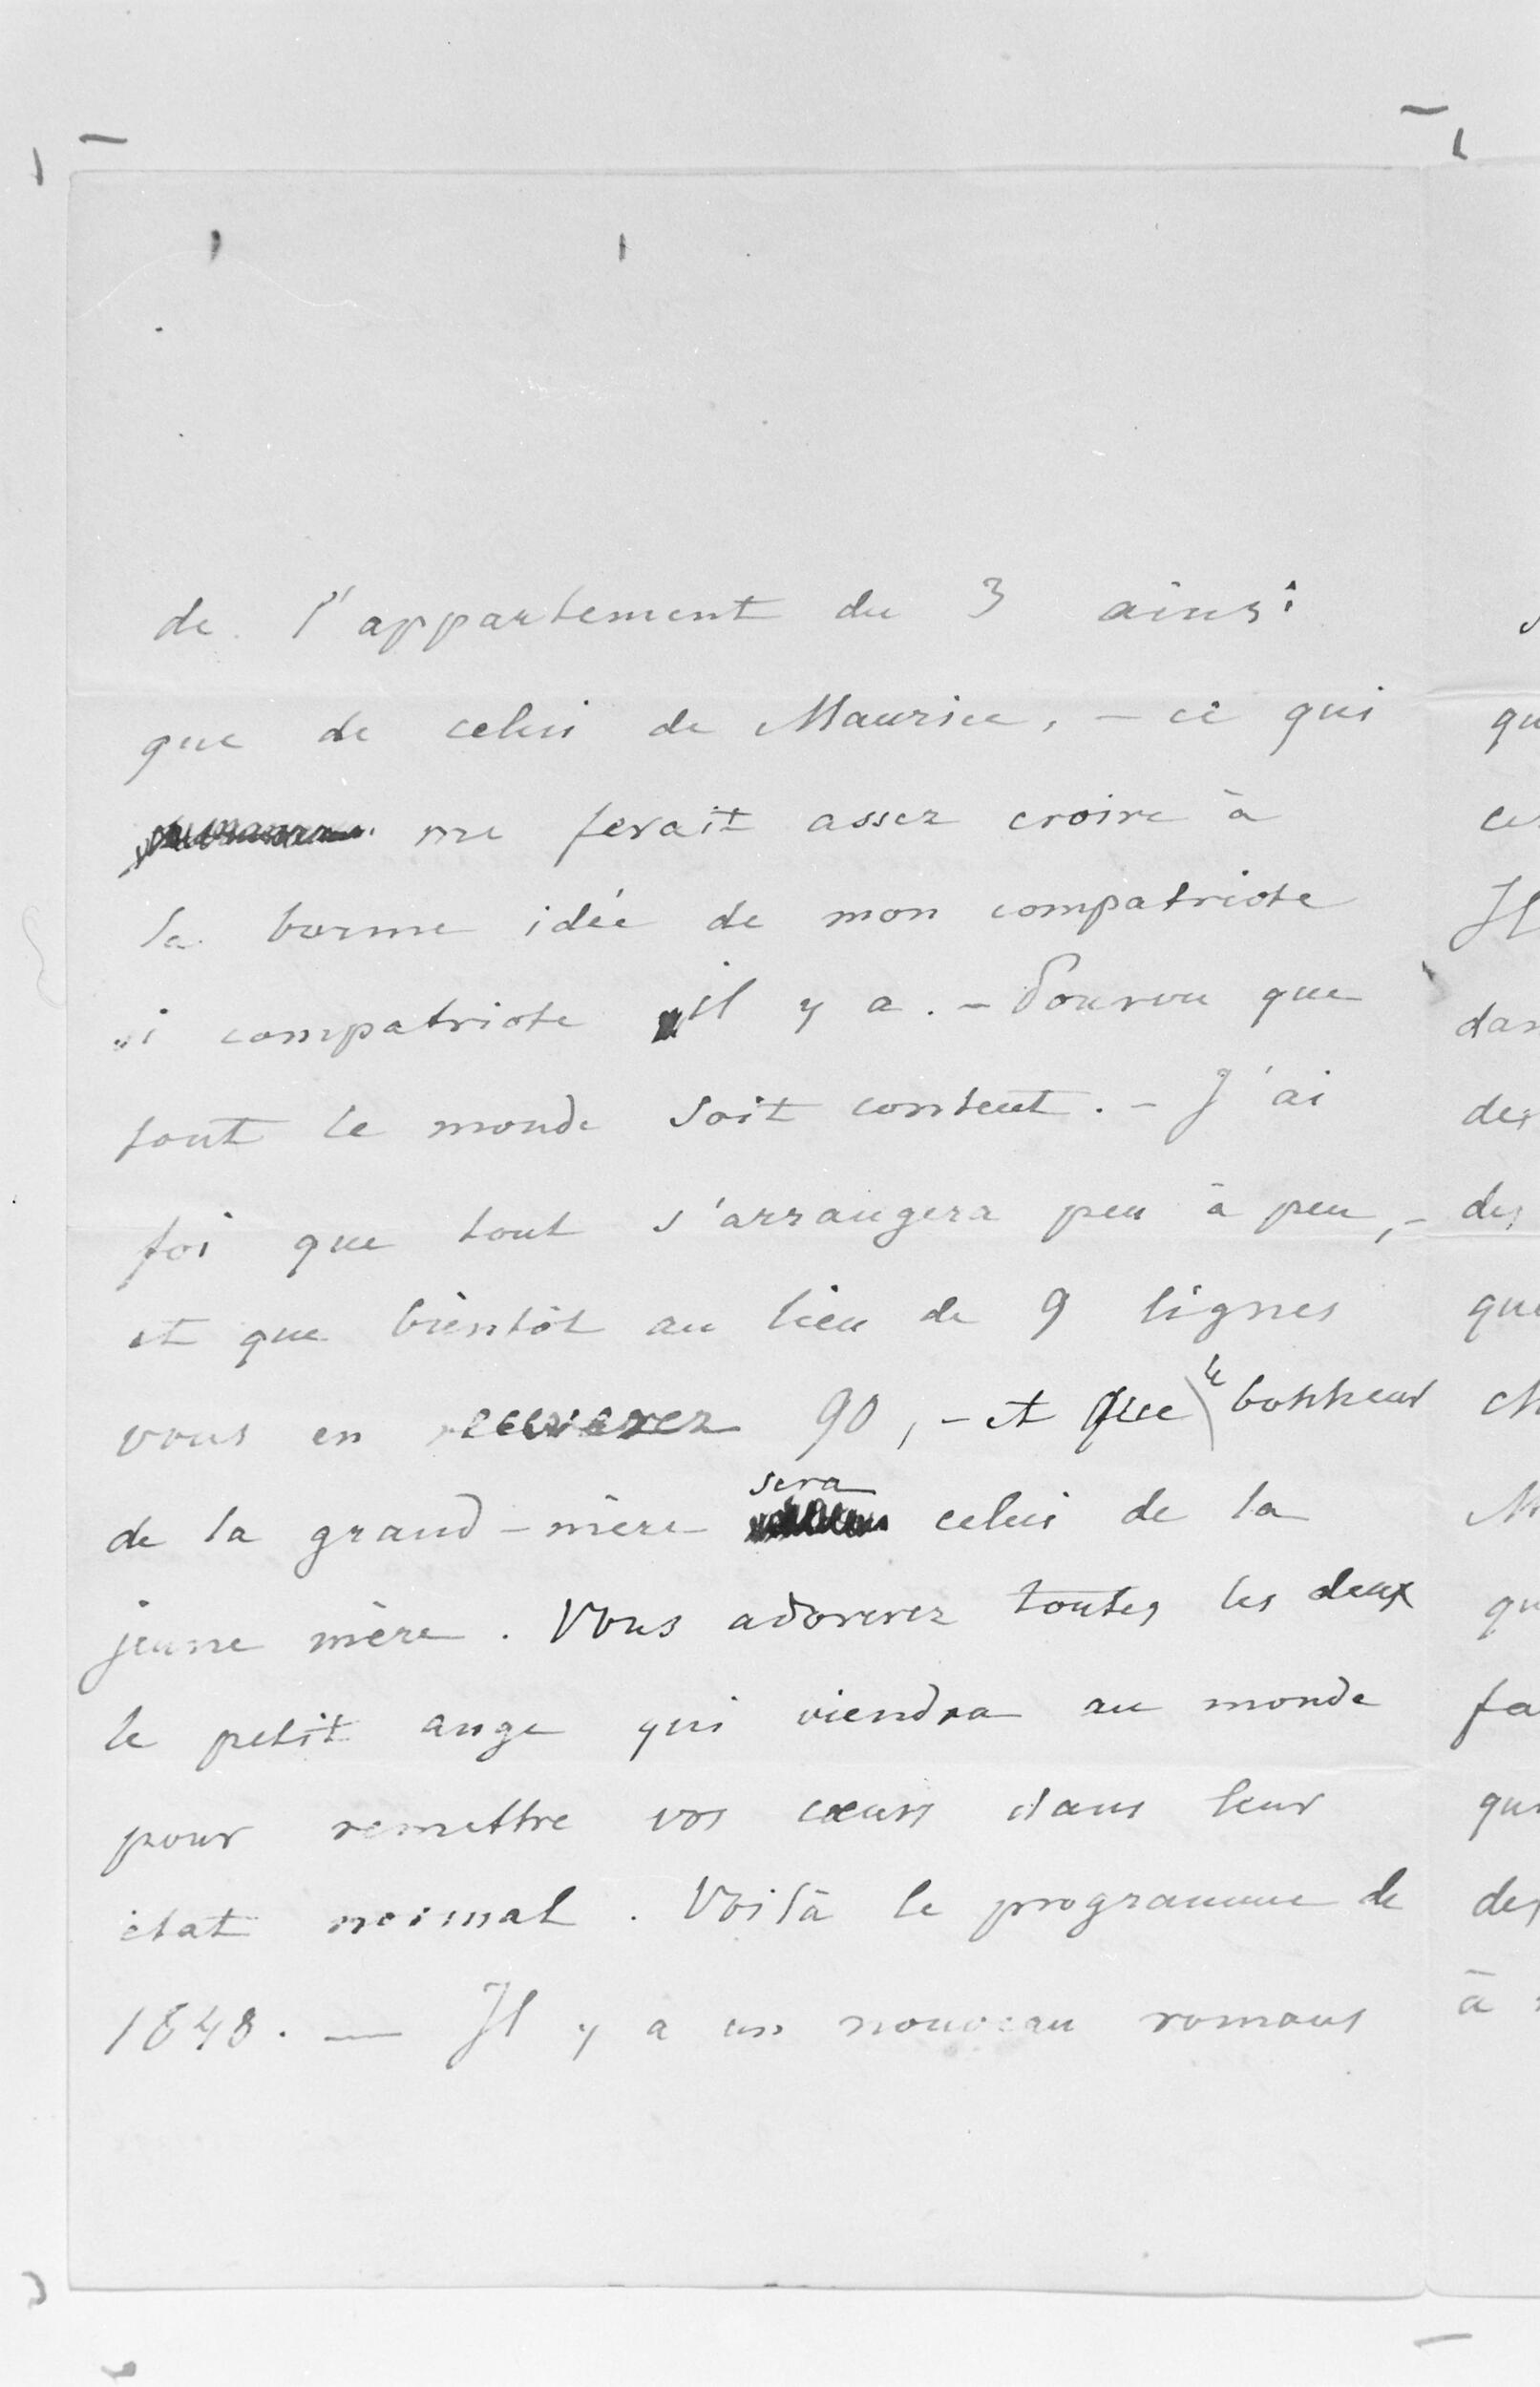 de l'appartement du 3 ainsi
que de celui de Maurice, – ce qui
me ferait assez croire à
la bonne idée de mon compatriote
si compatriote il y a. – Pourvu que
tout le monde soit content. – J'ai
foi que tout s'arrangera peu à peu, –
et que bientôt au lieu de 9 lignes
vous en recevrez 90, – et que le bonheur
de la grand-mère sera celui de la
jeune mère. Vous adorerez toutes les deux
le petit ange qui viendra au monde
pour remettre vos cœurs dans leur
état normal. Voilà le programme de
1848. — Il y a un nouveau romans
qu
ce
Il
dan
des
des
que
ch
M
qu
fa
qu
des
à